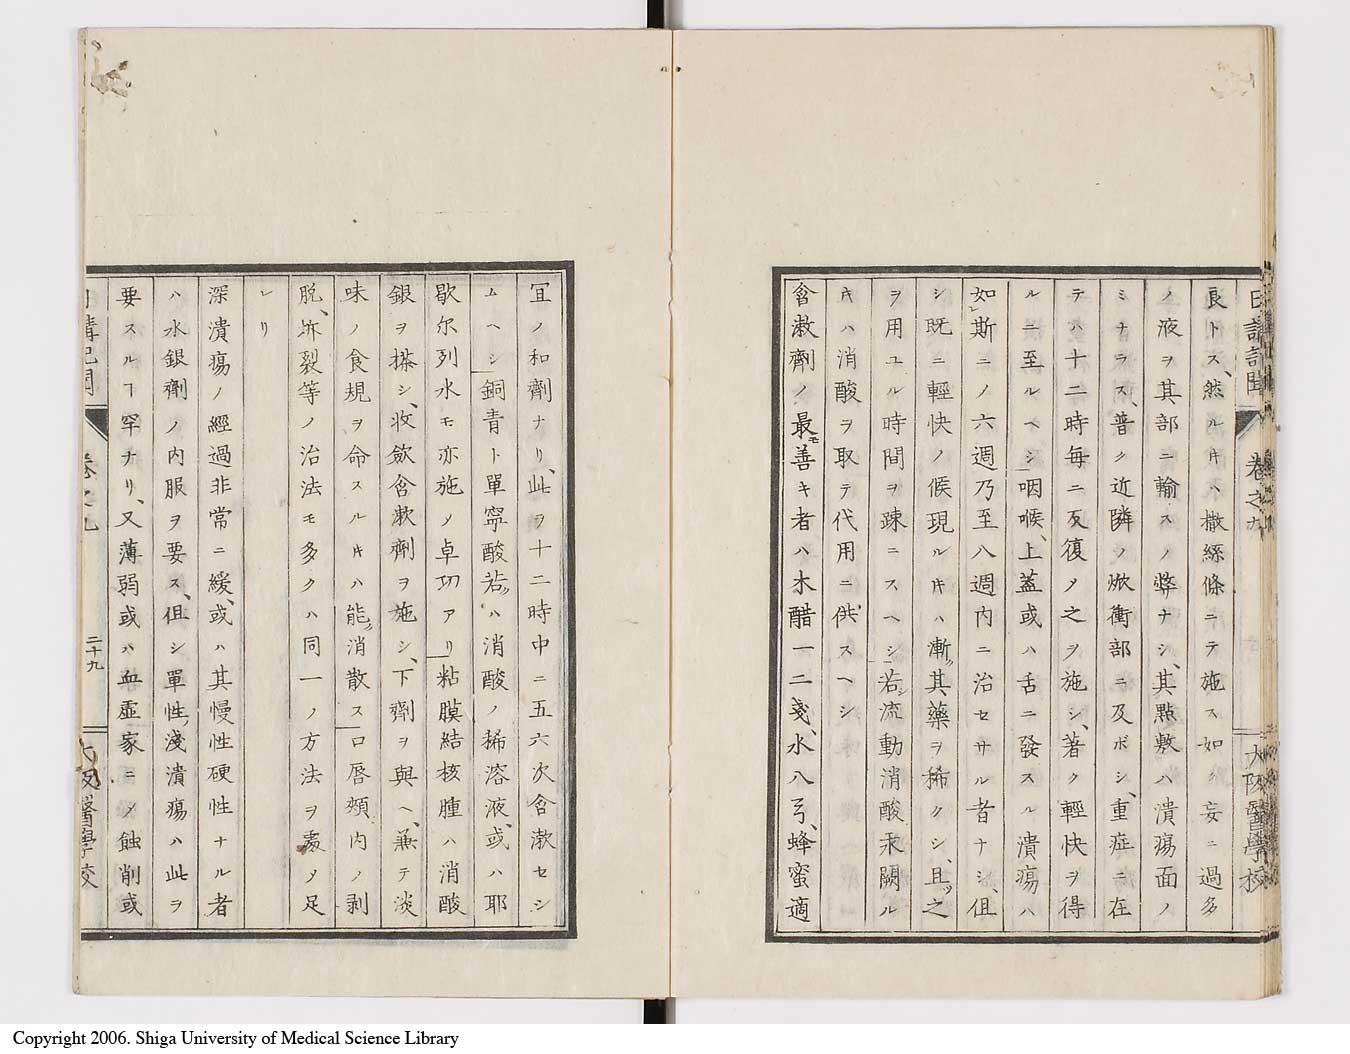 日講記聞 卷之九 大阪醫學校
良トス、然ルキハ撒絲條ニテ施ス如ク妄ニ過多
ノ液ヲ其部ニ輸スノ弊ナシ、其點敷ハ潰瘍面ノ
ミナラス、普ク近隣ノ焮衝部ニ及ボシ、重症ニ在
テハ十二時每ニ反復メ之ヲ施シ、著ク輕快ヲ得
ルニ至ルヘシ咽喉、上蓋或ハ舌ニ發スル潰瘍ハ
如斯ニノ六週乃至八週内ニ治セサル者ナシ、但
シ既ニ輕快ノ候現ルキハ漸ク其藥ヲ稀クシ、且ツ之
ヲ用ユル時間ヲ疎ニスヘシ若シ流動消酸汞闕ル
キハ消酸ヲ取テ代用ニ供スヘシ
含漱劑ノ最モ善キ者ハ木醋一二戔、水八弓、蜂蜜適
宜ノ和劑ナリ、此ヲ十二時中ニ五六次含漱セシ
ムヘシ銅青ト單寧酸若クハ消酸ノ稀溶液、或ハ耶
歇尔列水モ亦施メ卓功アリ粘膜結核腫ハ消酸
銀ヲ搽シ、收斂含漱劑ヲ施シ、下劑ヲ與ヘ、兼テ淡
味ノ食規ヲ命スルキハ能ク消散ス口唇頰、内ノ剥
脱、坼裂等ノ治法モ多クハ同一ノ方法ヲ處メ足
レリ
深潰瘍ノ經過非常ニ緩、或ハ其慢性硬性ナル者
ハ水銀劑ノ内服ヲ要ス、但シ單性淺潰瘍ハ此ヲ
要スルヿ罕ナリ、又薄弱或ハ血虛家ニメ蝕削或
日講記聞 卷之九 二十九 大阪醫學校
Copyright 2006. Shiga University of Medical Science Library